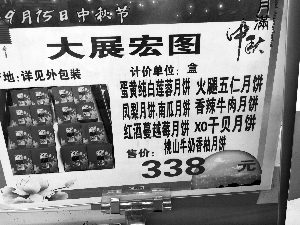 9月15日中秋节
月满中秋
大展宏图
产地:详见外包装 计价单位:盒
蛋黄纯白莲蓉月饼 火腿五仁月饼
凤梨月饼.南瓜月饼 香辣牛肉月饼
红酒蔓越莓月饼 xo干贝月饼
桃山牛奶香柚月饼
售价: 338 元